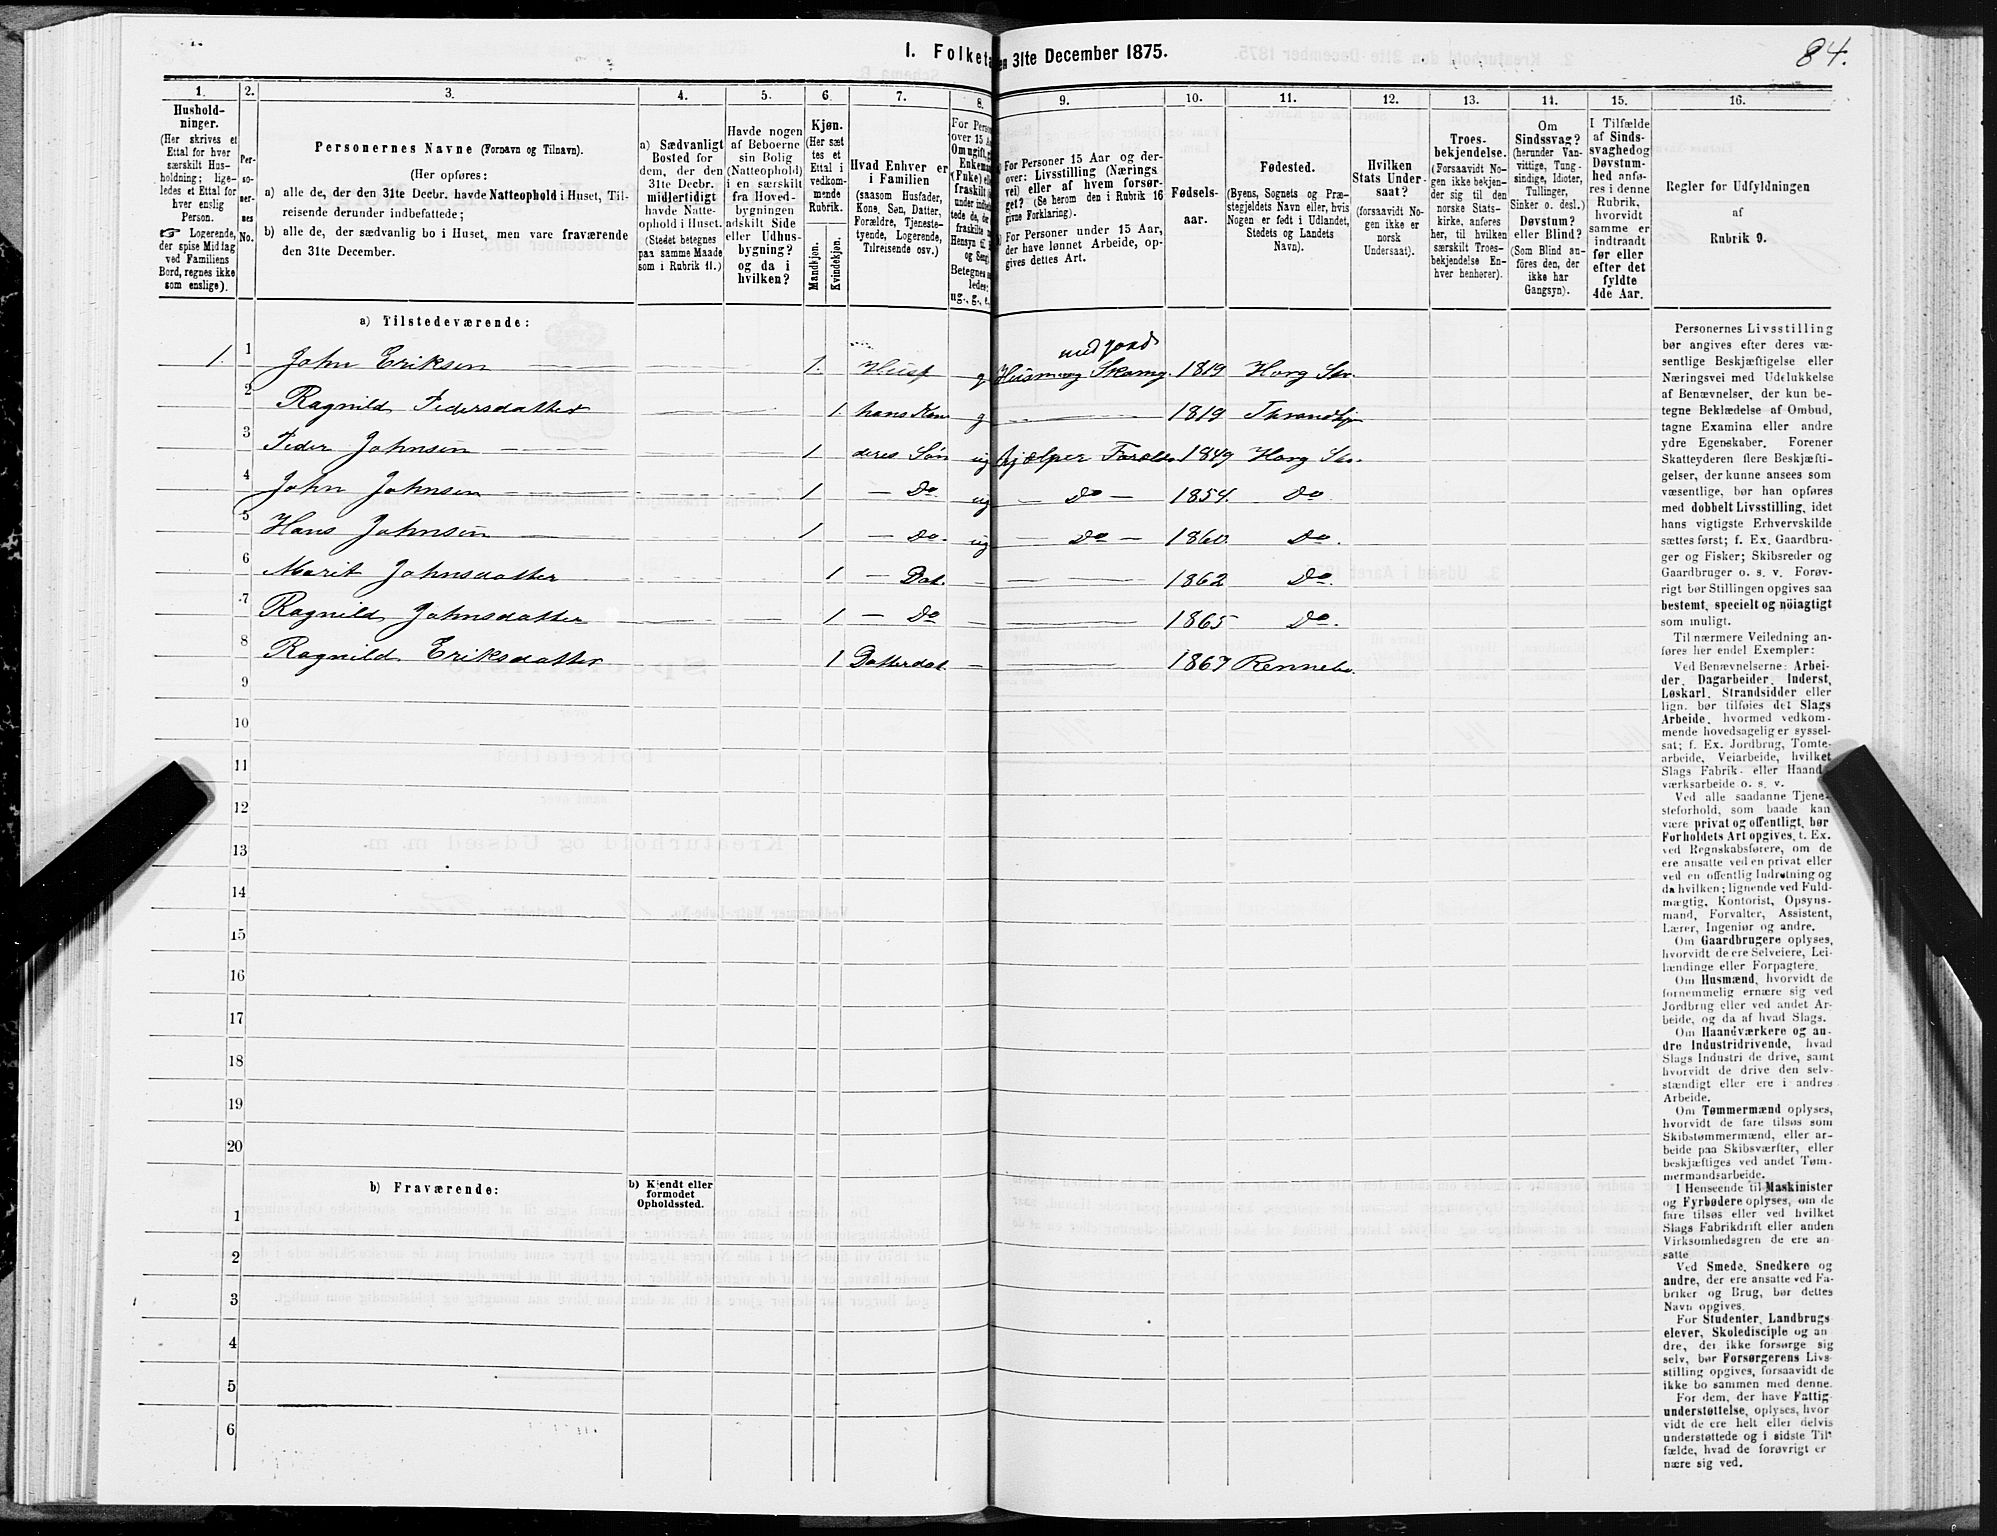 1. Folketa en 31te December 1875.
84.
1.
Hushold-
ninger.
(Her skrives et
Ettal for hver
særskilt Hus-
holdning; lige-
ledes et Ettal for
hver enslig
Person.
☞ Logerende,
der spise Middag
ved Familiens
Bord, regnes ikke
som enslige).
2.
Per-
so-
ner-
nes
No.
3.
Personernes Navne (Fornavn og Tilnavn).
(Her opføres:
a) alle de, der den 31te Decbr. havde Natteophold i Huset, Til-
reisende derunder indbefattede;
b) alle de, der sædvanlig bo i Huset, men vare fraværende
den 31te December.
4.
a) Sædvanligt
Bosted for
dem, der den
31te Decbr.
midlertidigt
havde Natte-
ophold i Huset.
(Stedet betegnes
paa samme Maade
som i Rubrik 11.)
5.
Havde nogen
af Beboerne
sin Bolig
(Natteophold)
i en særskilt
fra Hoved-
bygningen
adskilt Side
eller Udhus-
bygning?
og da i
hvilken?
6.
Kjøn.
(Her sæt
tes et
Ettal i
vedkom-
mende
Rubrik.
Mandkjøn.
Kvindekjøn.
7.
Hvad Enhver er
i Familien
(saasom Husfader,
Kone, Søn, Datter,
Forældre, Tjeneste-
tyende, Logerende,
Tilreisende osv.)
8.
For Perso
over 15 A
Om ugift, g
Enkema
(Fuke) e
fraskilt
Betegnes
ledes:
ug., g., e.
9.
For Personer 15 Aar og der-
over: Livsstilling (Nærings
vei) eller af hvem forsør-
get? (Se herom den i Rubrik 16
givne Forklaring).
For Personer under 15 Aar,
der have lønnet Arbeide, op-
gives dettes Art.
10.
Fødsels-
aar.
11.
Fødested.
(Byens, Sognets og Præ-
stegjeldets Navn eller, hvis
Nogen er født i Udlandet,
Stedets og Landets
Navn).
12.
Hvilken
Stats Under-
saat?
(forsaavidt No-
gen ikke er
norsk
Undersaat).
13.
Troes-
bekjendelse.
(Forsaavidt No-
gen ikke bekjen-
der sig til den
norske Stats-
kirke, anføres
her, til hvilken
særskilt Troes-
bekjendelse En-
hver henhører).
14.
Om
Sindssvag?
(herunder Van-
vittige, Tung-
sindige, Idioter,
Tullinger,
Sinker o. desl.)
Døvstum?
eller Blind?
(Som Blind an-
føres den, der
ikke har
Gangsyn).
15.
I Tilfælde
af Sinds-
svaghedog
Døvstum-
hed anfø-
res i denne
Rubrik,
hvorvidt
samme er
indtraadt
før eller
efter det
fyldte
4de Aar.
16.
Regler for Udfyldningen
af
Rubrik 9.
a) Tilstedeværende:
med Jord
1. 1 John Eriksen 1. Husf g Husm og Skomg. 1819 Horg Sr.
2 Ragnild Pedersdatter 1. hans Kone g 1819 Throndhjm
3 Peder Johnsen 1 deres Søn ug hjælper Forældr 1849 Horg Sr.
4 John Johnsen 1 Do. ug Do 1854. Do
5 Hans Johnsen 1 Do. ug Do 1860. Do.
6 Marit Johnsdatter 1 Dat. 1862 Do.
7 Ragnild Johnsdatter 1 Do 1865 Do.
8 Ragnild Eriksdatter 1 Datterdat. 1867 Rennebo.
9
10
11
12
13
14
15
16
17
18
19
20
b) Fraværende:
b) Kjendt eller
formodet
Opholdssted.
1
2
3
4
5
6
Personernes Livsstilling
bør angives efter deres væ-
sentlige Beskjæftigelse eller
Næringsvei med Udelukkelse
af Benævnelser, der kun be-
tegne Beklædelse af Ombud,
tagne Examina eller andre
ydre Egenskaber. Forener
Skatteyderen flere Beskjæfti-
gelser, der kunne ansees som
væsentlige, bør han opføres
med dobbelt Livsstilling, idet
hans vigtigste Erhvervskilde
sættes først; f. Ex. Gaardbru-
ger og Fisker; Skibsreder og
Gaardbruger o. s. v. Forøv-
rigt bør Stillingen opgives saa
bestemt, specielt og nöiagtigt
som muligt.
Til nærmere Veiledning an-
føres her endel Exempler:
Ved Benævnelserne: Arbei-
der, Dagarbeider, Inderst,
Løskarl, Strandsidder eller
lign. bør tilføies det Slags
Arbeide, hvormed vedkom-
mende hovedsagelig er syssel-
sat; f. Ex. Jordbrug, Tomte-
arbeide, Veiarbeide, hvilket
Slags Fabrik- eller Haand-
værksarbeide o. s. v.
Ved alle saadanne Tjene-
steforhold, som baade kan
være privat og offentligt, bør
Forholdets Art opgives, t. Ex.
ved Regnskabsførere, om de
ere ansatte ved en privat eller
ved en offentlig Indretning og
da hvilken; lignende ved Fuld-
mægtig, Kontorist, Opsyns-
mand, Forvalter, Assistent,
Lærer, Ingeniør og andre.
Om Gaardbrugere oplyses,
hvorvidt de ere Selveiere, Lei-
lændinge eller Forpagtere.
Om Husmænd, hvorvidt de
fornemmelig ernære sig ved
Jordbrug eller ved andet Ar-
beide, og da af hvad Slags.
Om Haandværkere og an-
dre Industridrivende, hvad
Slags Industri de drive, samt
hvorvidt de drive den selv-
stændigt eller ere i andres
Arbeide.
Om Tømmermænd oplyses,
hvorvidt de fare tilsøs som
Skibstømmermænd, eller ar-
beide paa Skibsværfter, eller
beskjæftiges ved andet Tøm-
mermandsarbeide.
I Henseende til Maskinister
og Fyrbødere oplyses, om de
fare tilsøs eller ved hvilket
Slags Fabrikdrift eller anden
Virksomhedsgren de ere an-
satte
Ved Smede, Snedkere og
andre, der ere ansatte ved Fa-
briker og Brug, bør dettes
Navn opgives.
For Studenter, Landbrugs
elever, Skoledisciple og an
dre, der ikke forsørge sig
selv, bør Forsørgerens Livs-
stilling opgives, forsaavidt de
ikke bo sammen med denne.
For dem, der have Fattig-
understøttelse, oplyses, hvor
vidt de ere helt eller delvis
understøttede og i sidste Til-
fælde, hvad de forøvrigt er
nære sig ved.